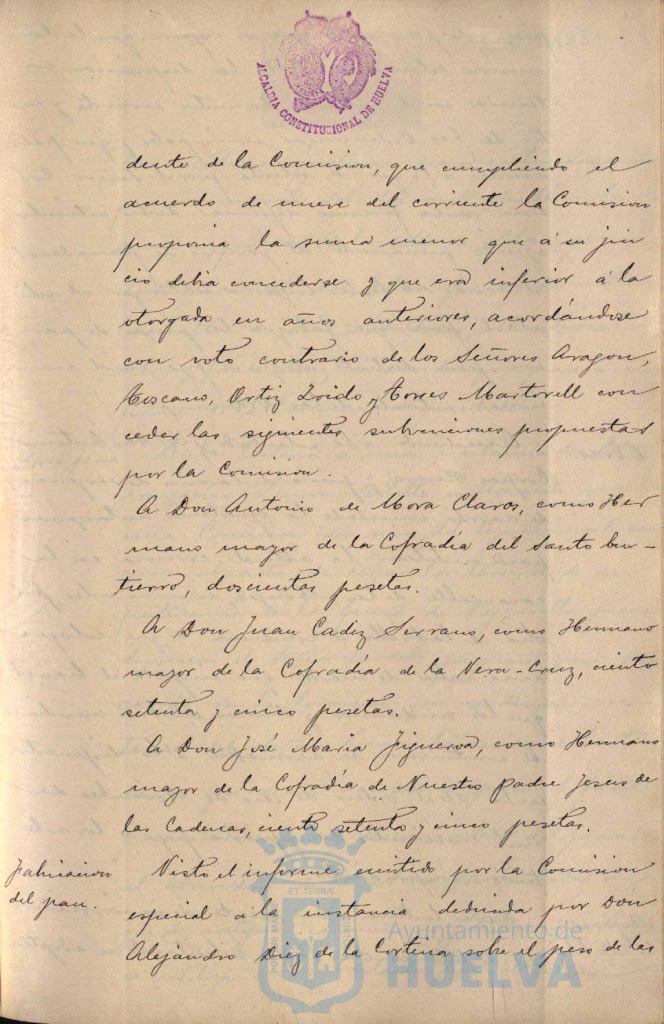 ALCALDIA CONSTITUCIONAL DE HUELVA
dente de la Comision, que cumpliendo el
acuerdo de nueve del corriente la Comision
proponia la suma menor que á su jui
cio debia concederse y que era inferior á la
otorgada en años anteriores, acordándose
con voto contrario de los Señores Aragon,
Toscano, Ortiz Zoido y Torres Martorell con
ceder las siguientes subvenciones propuestas
por la Comision.
A Don Antonio de Mora Claros, como Her
mano mayor de la Cofradía del Santo En-
tierro, doscientas pesetas.
A Don Juan Cadiz Serrano, como Hermano
mayor de la Cofradía de la Vera-Cruz, ciento
setenta y cinco pesetas.
A Don José Maria Figueroa, como Hermano
mayor de la Cofradía de Nuestro Padre Jesus de
las Cadenas, ciento setenta y cinco pesetas.
Fabricacion
del pan.
Visto el informe emitido por la Comision
especial á la instancia deducida por Don
Alejandro Diez de la Cortina sobre el peso de las
Ayuntamiento de
HUELVA